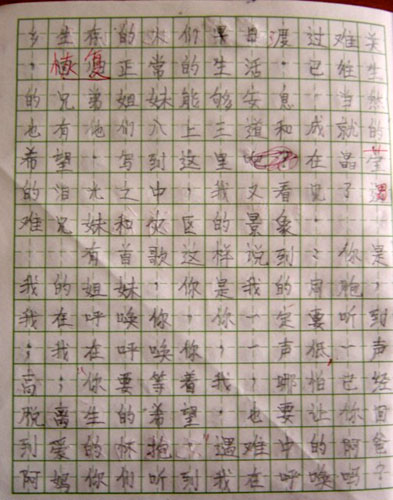 乡生存的火们早日渡过难关
，恢复正常的生活，已往生
的兄弟姐妹能够安息，当然
也有他们 上三道和成就的
希望，写到这里 在晶莹
的泪光之中，我又看见了遇
难兄妹和灾区的景象……
……有首歌这样说到：你是
我的姐妹，你是我的同胞，
我在呼唤你，你一定要听到
；我在呼唤你，一声低，一声
高；你要等着我，哪怕已经
脱离生的希望，也要让你回
到爱的怀抱，遇难中的阿爸
阿妈你们听到我在呼唤吗？